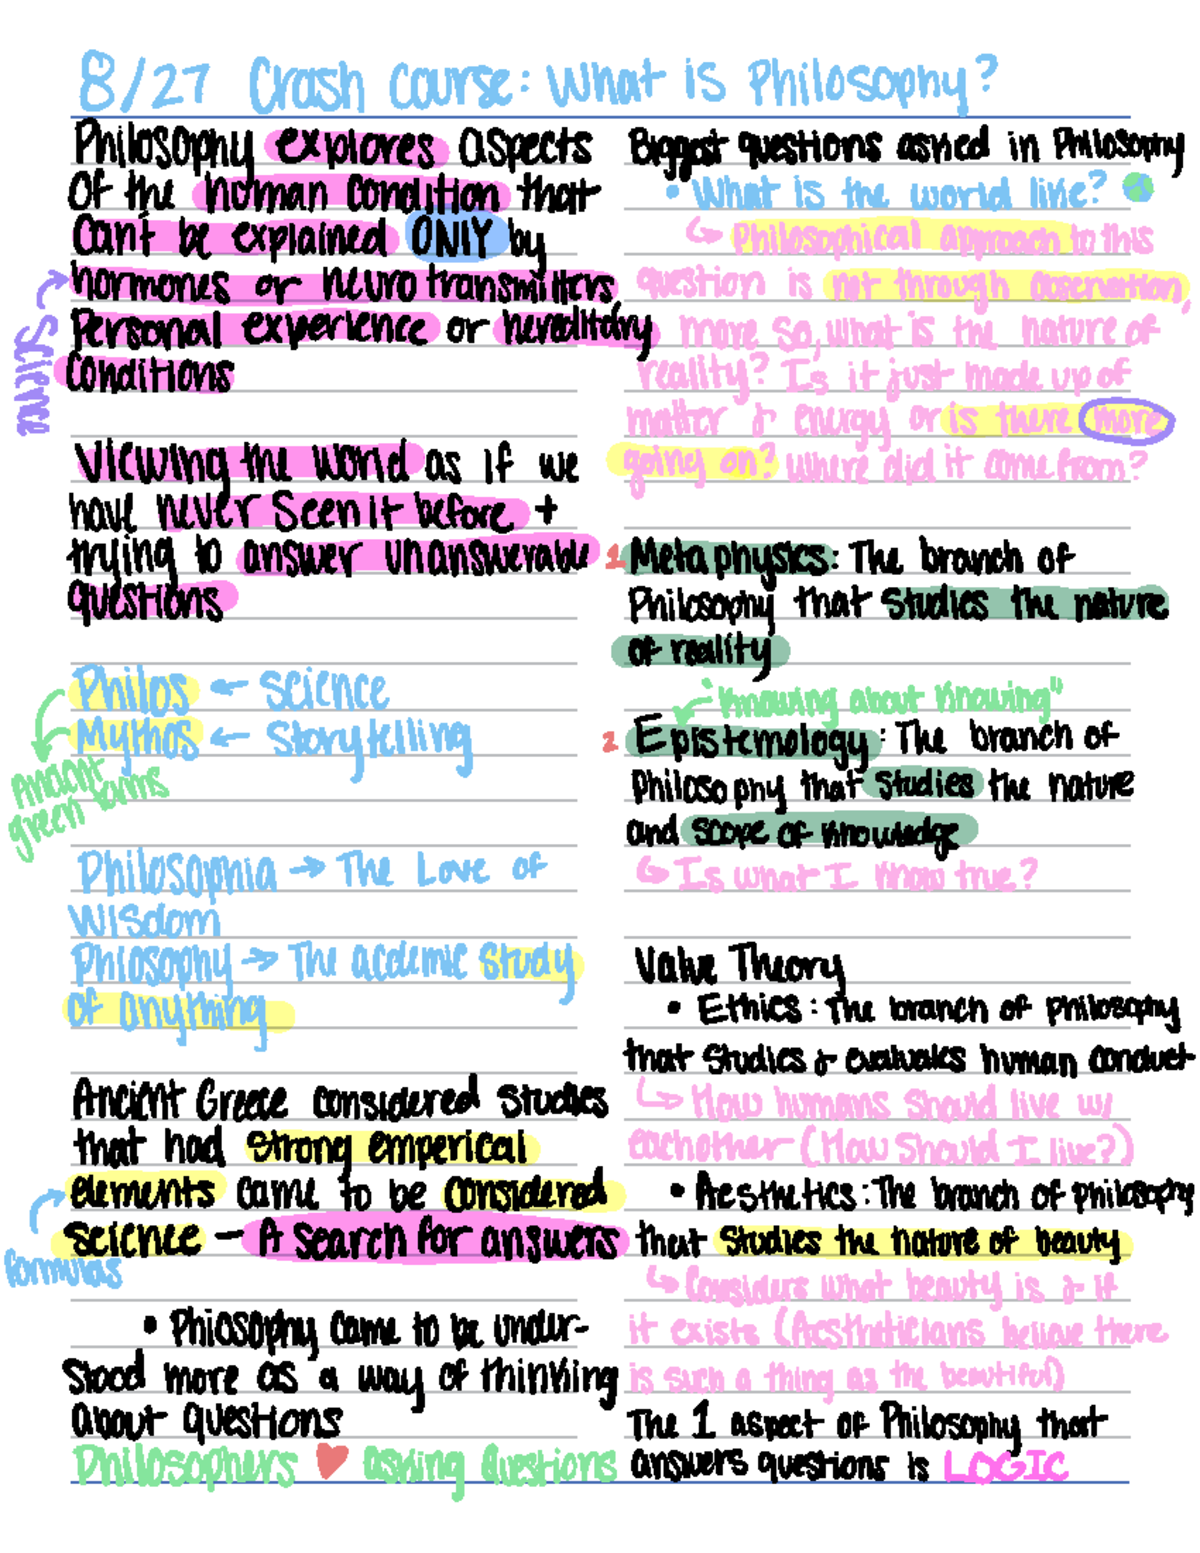 8/27 Crash Course: What is Philosophy?
Philosophy explores aspects
of the human condition that
Can't be explained ONLY by
hormones or neurotransmitters,
Personal experience or hereditary
conditions
Science
Viewing the world as if we
have never seen it before +
trying to answer unanswerable
questions
Philos ← Science
Mythos ← Storytelling
Ancient
green forms
Philosophia → The Love of
Wisdom
Philosophy → The acdemic study
of anything
Ancient Greece considered studies
that had strong emperical
elements came to be considered
science - A search for answers
formulas
• Philosophy came to be under-
stood more as a way of thinking
about questions
Philosophers ♥ asking questions
Biggest questions asked in Philosophy
• What is the world like?
↳ Philosophical approach to this
question is not through observation,
more so, what is the nature of
reality? Is it just made up of
matter & energy or is there more
going on? Where did it come from?
1 Metaphysics: The branch of
Philosophy that studies the nature
of reality
"Knowing about Knowing"
2 Epistemology: The branch of
Philosophy that studies the nature
and scope of knowledge
↳ Is what I know true?
Value Theory
• Ethics: The branch of philosophy
that studies & evaluates human conduct
↳ How humans should live w/
eachother (How Should I live?)
• Aesthetics: The branch of philosophy
that studies the nature of beauty
↳ Considers what beauty is & if
it exists (Aestheticians believe there
is such a thing as the beautiful)
The 1 aspect of Philosophy that
answers questions is LOGIC